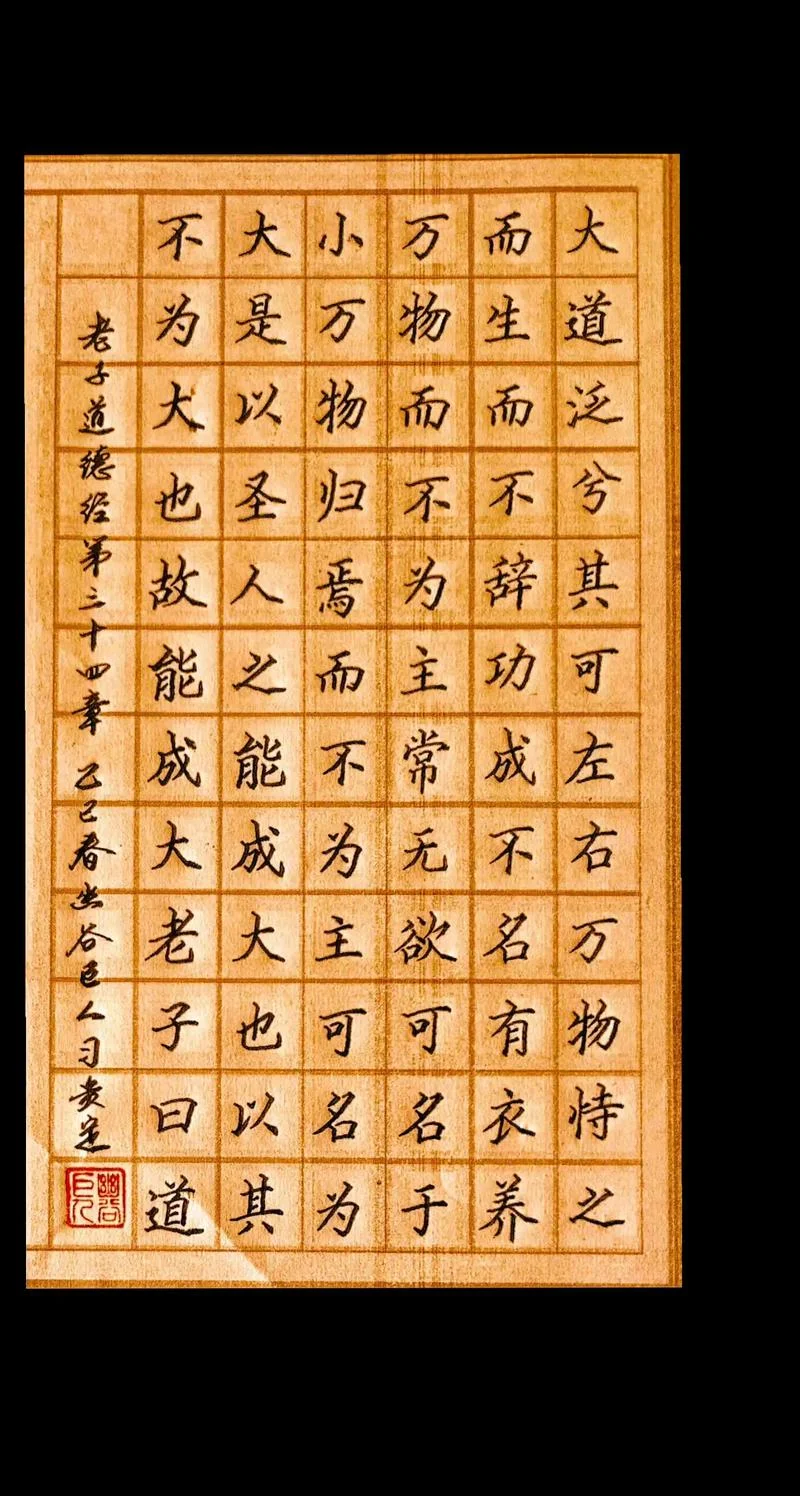 大道泛兮其可左右万物恃之
而生而不辞功成不名有衣养
万物而不为主常无欲可名于
小万物归焉而不为主可名为
大是以圣人之能成大也以其
不为大也故能成大老子曰道
老子道德经第三十四章 乙巳春幽谷巨人习
幽谷巨人